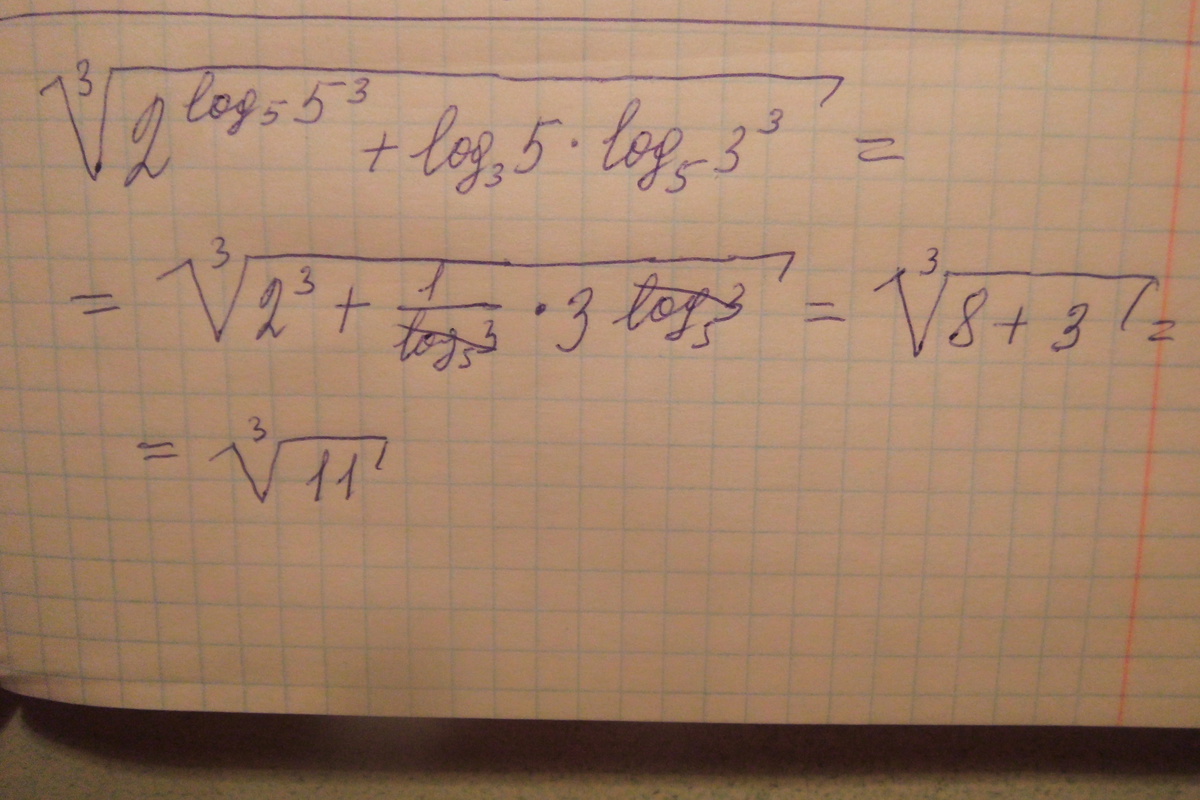 ∛(2^(log₅5³) + log₃5 · log₅3³) =
= ∛(2³ + 1/log₅3 · 3 log₅3) = ∛(8 + 3) =
= ∛11